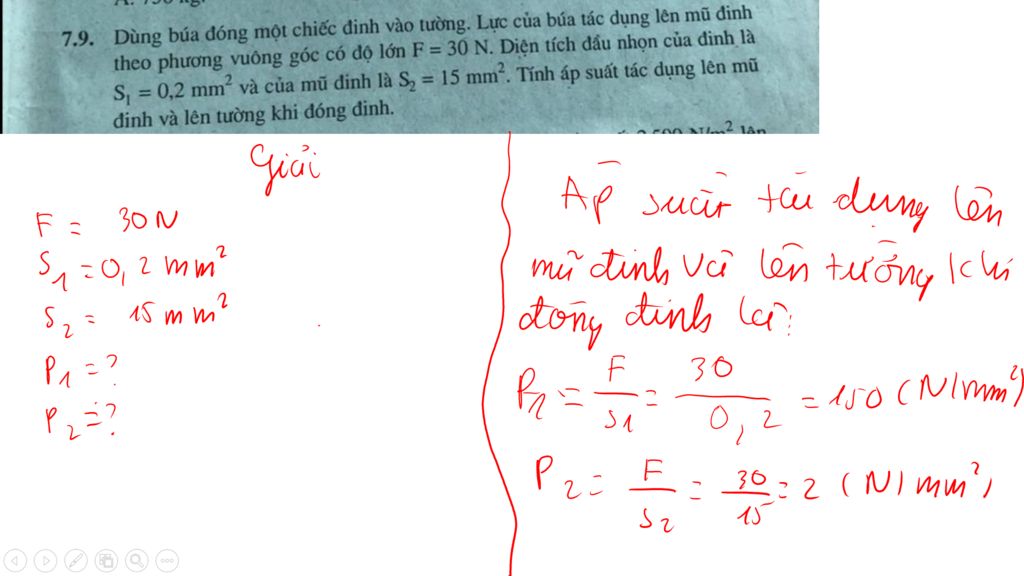 A. 750 kg.
7.9. Dùng búa đóng một chiếc đinh vào tường. Lực của búa tác dụng lên mũ đinh
theo phương vuông góc có độ lớn F = 30 N. Diện tích đầu nhọn của đinh là
S₁ = 0,2 mm² và của mũ đinh là S₂ = 15 mm². Tính áp suất tác dụng lên mũ
đinh và lên tường khi đóng đinh.
N/m² lên
Giải
F = 30 N
S₁ = 0,2 mm²
S₂ = 15 mm²
P₁ = ?
P₂ = ?
Áp suất tác dụng lên
mũ đinh và lên tường khi
đóng đinh là:
P₁ = F/S₁ = 30/0,2 = 150 (N/mm²)
P₂ = F/S₂ = 30/15 = 2 (N/mm²)